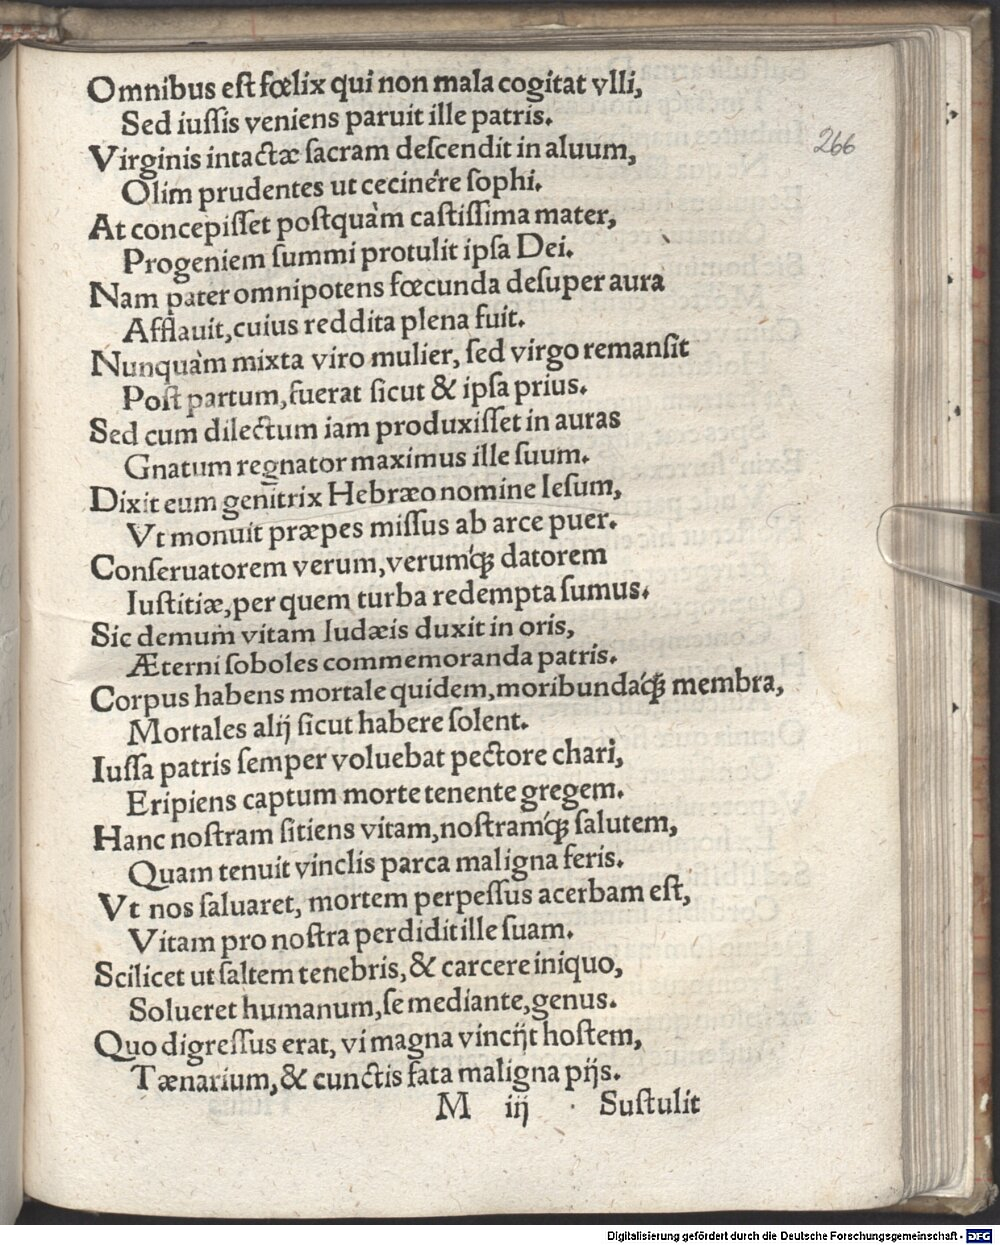 Omnibus est fœlix qui non mala cogitat vlli,
Sed iussis veniens paruit ille patris.
266
Virginis intactæ sacram descendit in aluum,
Olim prudentes ut cecinére sophi.
At concepisset postquàm castissima mater,
Progeniem summi protulit ipsa Dei.
Nam pater omnipotens fœcunda desuper aura
Afflauit, cuius reddita plena fuit.
Nunquàm mixta viro mulier, sed virgo remansit
Post partum, fuerat sicut & ipsa prius.
Sed cum dilectum iam produxisset in auras
Gnatum regnator maximus ille suum.
Dixit eum genitrix Hebræo nomine Iesum,
Vt monuit præpes missus ab arce puer.
Conseruatorem verum, verumq́ꝫ datorem
Iustitiæ, per quem turba redempta sumus.
Sic demum vitam Iudæis duxit in oris,
Æterni soboles commemoranda patris.
Corpus habens mortale quidem, moribundaq́ꝫ membra,
Mortales alij sicut habere solent.
Iussa patris semper voluebat pectore chari,
Eripiens captum morte tenente gregem.
Hanc nostram sitiens vitam, nostramq́ꝫ salutem,
Quam tenuit vinclis parca maligna feris.
Vt nos saluaret, mortem perpessus acerbam est,
Vitam pro nostra perdidit ille suam.
Scilicet ut saltem tenebris, & carcere iniquo,
Solueret humanum, se mediante, genus.
Quo digressus erat, vi magna vincijt hostem,
Tænarium, & cunctis fata maligna pijs.
M iij Sustulit
Digitalisierung gefördert durch die Deutsche Forschungsgemeinschaft - DFG